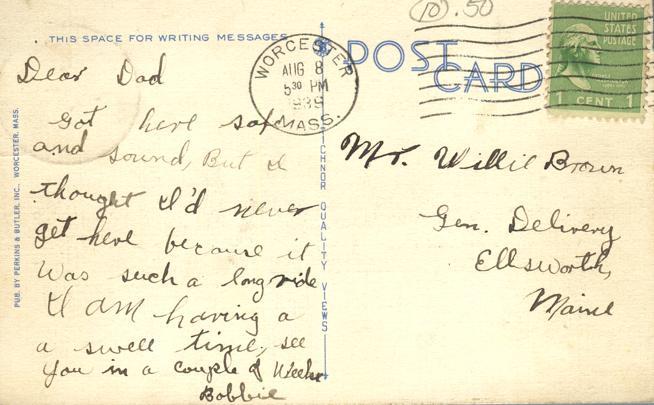 (10) .50
THIS SPACE FOR WRITING MESSAGES
POST
CARD
WORCESTER
AUG 8
5 30 PM
1939
MASS.
UNITED
STATES
POSTAGE
1 CENT 1
Dear Dad
Got here safe
and sound, But I
thought I'd never
get here because it
Was such a long ride
I am having a
a swell time, see
you in a couple of Weeks
Bobbie
Mr. Willie Brown
Gen. Delivery
Ellsworth,
Maine
PUB. BY PERKINS & BUTLER, INC., WORCESTER, MASS.
TICHNOR QUALITY VIEWS